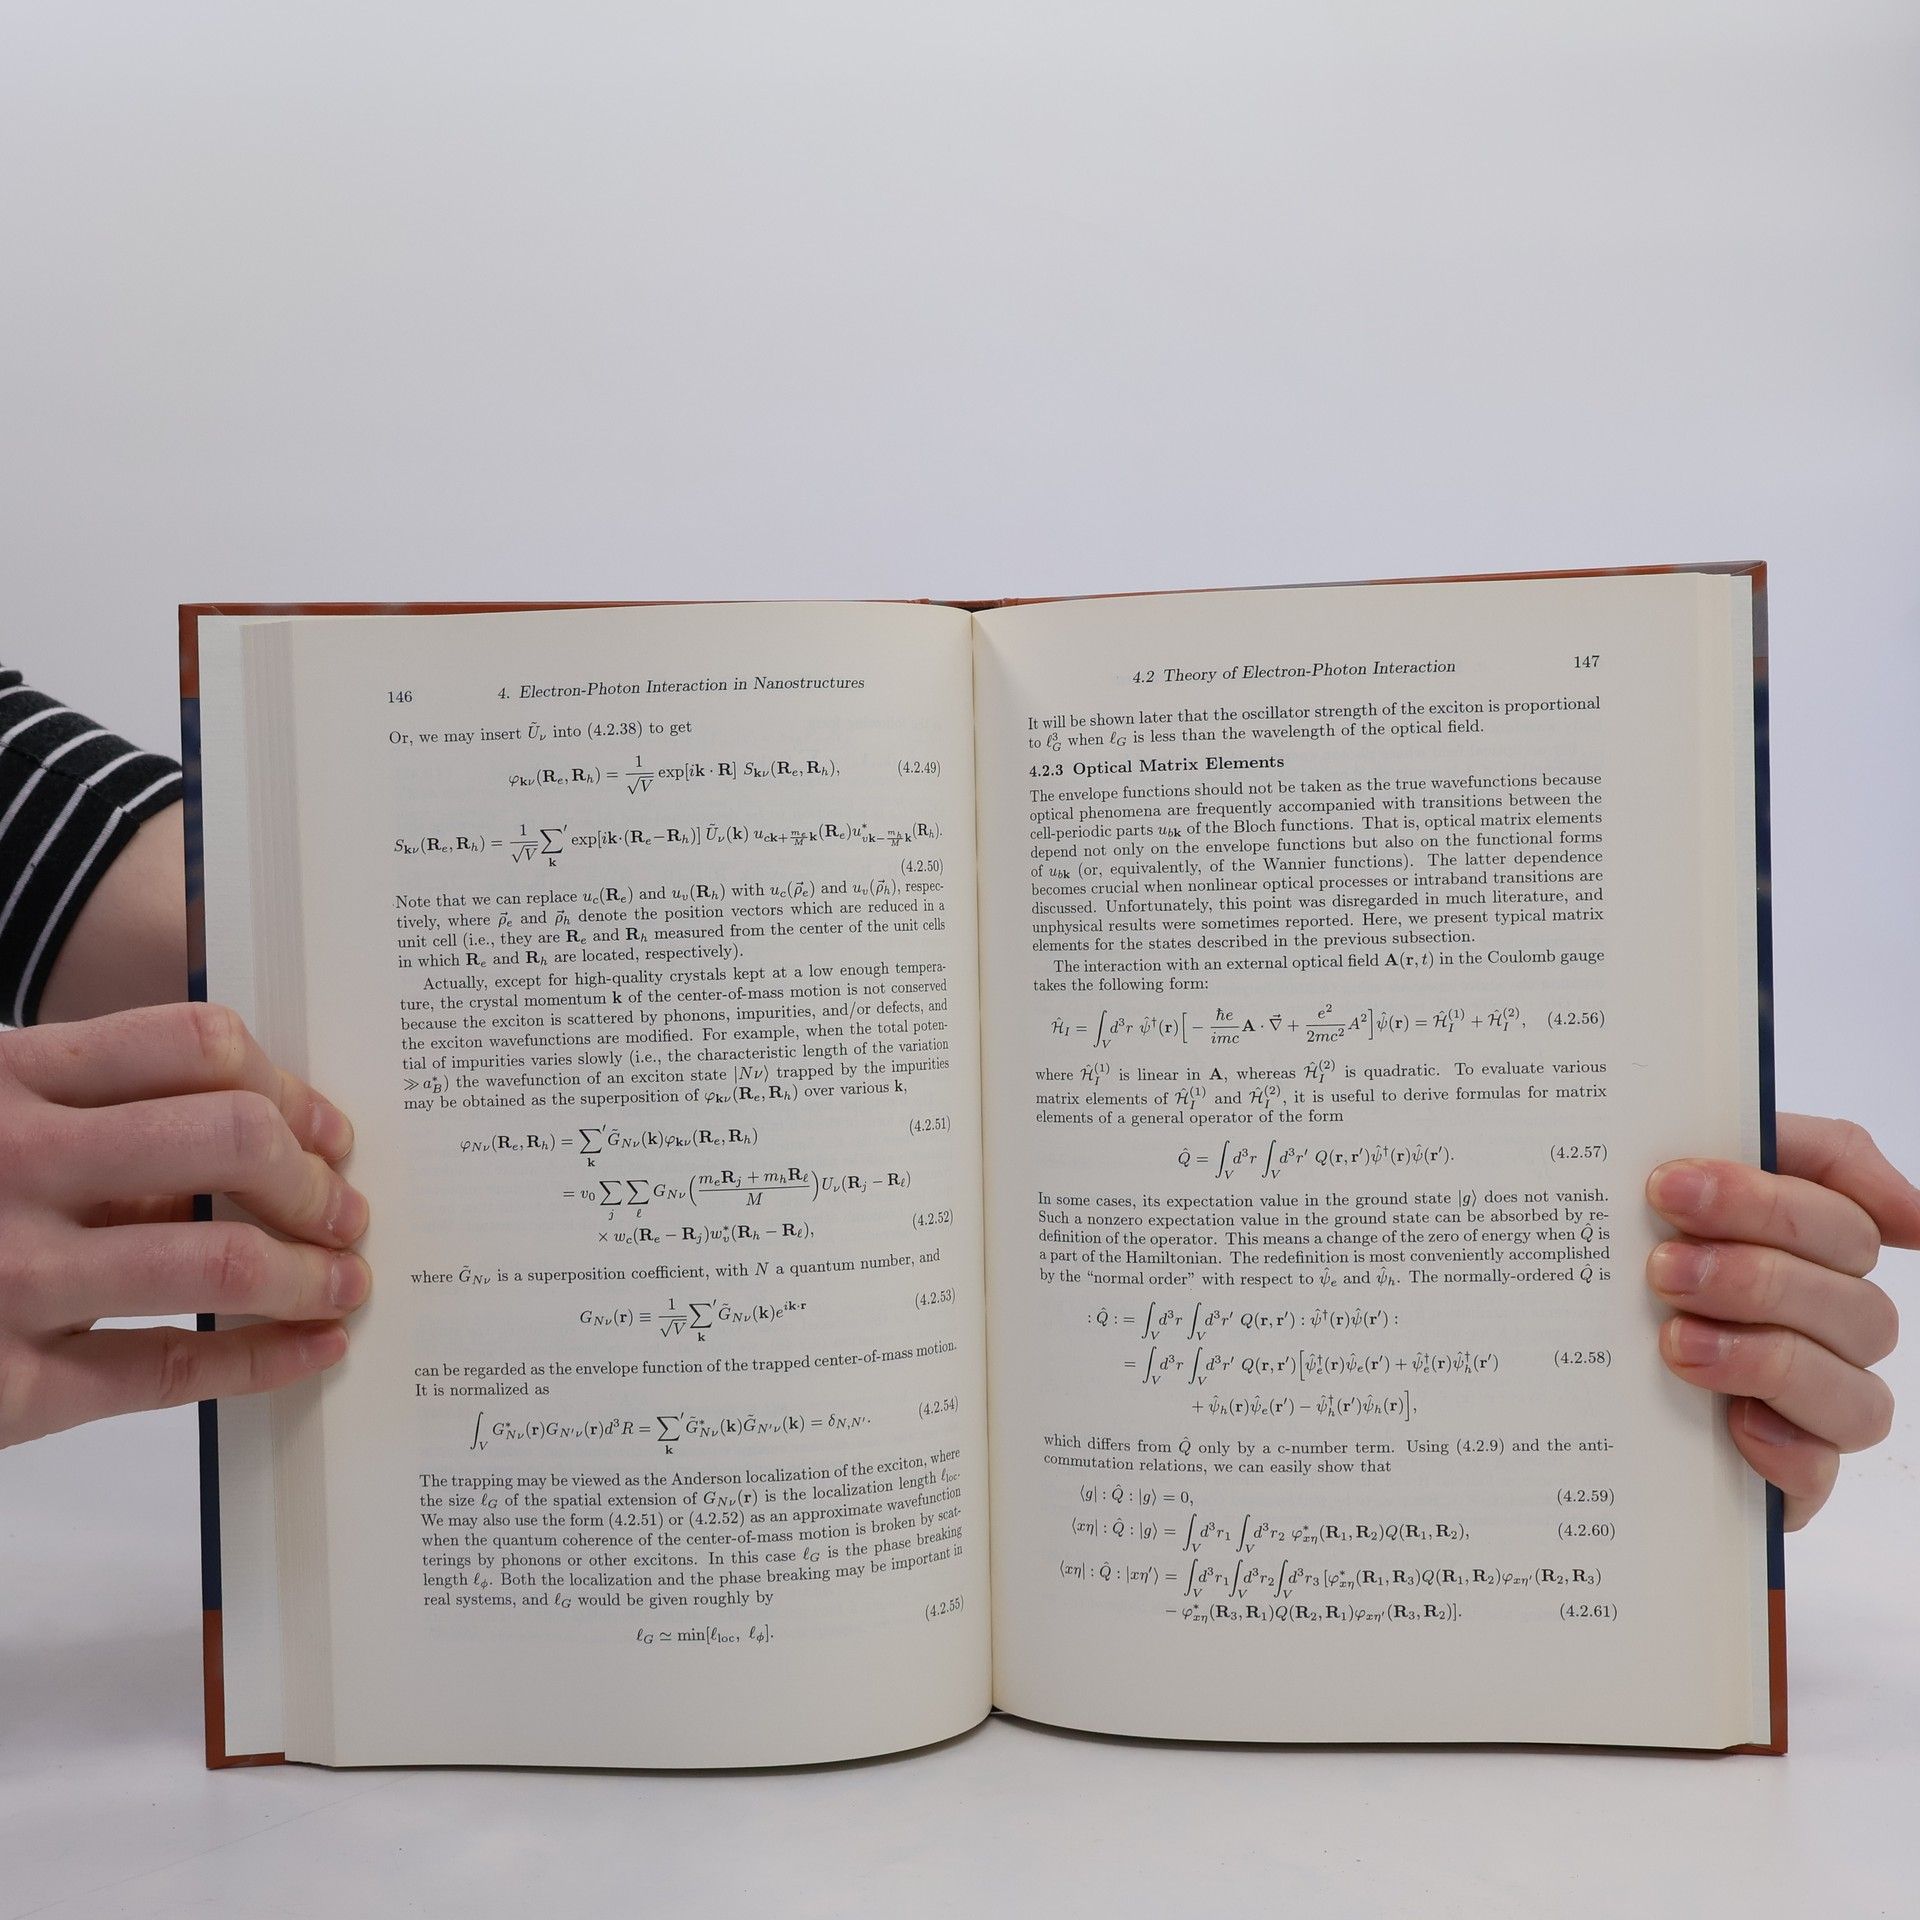 146 4. Electron-Photon Interaction in Nanostructures
Or, we may insert Ũ_ν into (4.2.38) to get
φ_kν(R_e, R_h) = 1/√V exp[ik · R] S_kν(R_e, R_h), (4.2.49)
S_kν(R_e, R_h) = 1/√V ∑′_k exp[ik·(R_e−R_h)] Ũ_ν(k) u_{ck+(m_e/M)k}(R_e)u*_{vk−(m_h/M)k}(R_h).
(4.2.50)
Note that we can replace u_c(R_e) and u_v(R_h) with u_c(ρ⃗_e) and u_v(ρ⃗_h), respec-
tively, where ρ⃗_e and ρ⃗_h denote the position vectors which are reduced in a
unit cell (i.e., they are R_e and R_h measured from the center of the unit cells
in which R_e and R_h are located, respectively).
Actually, except for high-quality crystals kept at a low enough tempera-
ture, the crystal momentum k of the center-of-mass motion is not conserved
because the exciton is scattered by phonons, impurities, and/or defects, and
the exciton wavefunctions are modified. For example, when the total poten-
tial of impurities varies slowly (i.e., the characteristic length of the variation
≫ a*_B) the wavefunction of an exciton state |Nν⟩ trapped by the impurities
may be obtained as the superposition of φ_kν(R_e, R_h) over various k,
φ_Nν(R_e, R_h) = ∑′_k G̃_Nν(k)φ_kν(R_e, R_h) (4.2.51)
= v_0 ∑_j ∑_ℓ G_Nν((m_e R_j + m_h R_ℓ)/M) U_ν(R_j − R_ℓ)
× w_c(R_e − R_j)w*_v(R_h − R_ℓ), (4.2.52)
where G̃_Nν is a superposition coefficient, with N a quantum number, and
G_Nν(r) ≡ 1/√V ∑′_k G̃_Nν(k)e^{ik·r} (4.2.53)
can be regarded as the envelope function of the trapped center-of-mass motion.
It is normalized as
∫_V G*_Nν(r)G_N′ν(r)d³R = ∑′_k G̃*_Nν(k)G̃_N′ν(k) = δ_N,N′. (4.2.54)
The trapping may be viewed as the Anderson localization of the exciton, where
the size ℓ_G of the spatial extension of G_Nν(r) is the localization length ℓ_loc.
We may also use the form (4.2.51) or (4.2.52) as an approximate wavefunction
when the quantum coherence of the center-of-mass motion is broken by scat-
terings by phonons or other excitons. In this case ℓ_G is the phase breaking
length ℓ_ϕ. Both the localization and the phase breaking may be important in
real systems, and ℓ_G would be given roughly by
ℓ_G ≃ min[ℓ_loc, ℓ_ϕ]. (4.2.55)
4.2 Theory of Electron-Photon Interaction 147
It will be shown later that the oscillator strength of the exciton is proportional
to ℓ³_G when ℓ_G is less than the wavelength of the optical field.
4.2.3 Optical Matrix Elements
The envelope functions should not be taken as the true wavefunctions because
optical phenomena are frequently accompanied with transitions between the
cell-periodic parts u_bk of the Bloch functions. That is, optical matrix elements
depend not only on the envelope functions but also on the functional forms
of u_bk (or, equivalently, of the Wannier functions). The latter dependence
becomes crucial when nonlinear optical processes or intraband transitions are
discussed. Unfortunately, this point was disregarded in much literature, and
unphysical results were sometimes reported. Here, we present typical matrix
elements for the states described in the previous subsection.
The interaction with an external optical field A(r, t) in the Coulomb gauge
takes the following form:
Ĥ_I = ∫_V d³r ψ̂†(r)[ − ħe/imc A · ∇⃗ + e²/2mc² A² ]ψ̂(r) = Ĥ_I^(1) + Ĥ_I^(2), (4.2.56)
where Ĥ_I^(1) is linear in A, whereas Ĥ_I^(2) is quadratic. To evaluate various
matrix elements of Ĥ_I^(1) and Ĥ_I^(2), it is useful to derive formulas for matrix
elements of a general operator of the form
Q̂ = ∫_V d³r ∫_V d³r′ Q(r, r′)ψ̂†(r)ψ̂(r′). (4.2.57)
In some cases, its expectation value in the ground state |g⟩ does not vanish.
Such a nonzero expectation value in the ground state can be absorbed by re-
definition of the operator. This means a change of the zero of energy when Q̂ is
a part of the Hamiltonian. The redefinition is most conveniently accomplished
by the “normal order” with respect to ψ̂_e and ψ̂_h. The normally-ordered Q̂ is
: Q̂ : = ∫_V d³r ∫_V d³r′ Q(r, r′) : ψ̂†(r)ψ̂(r′) :
= ∫_V d³r ∫_V d³r′ Q(r, r′)[ψ̂†_e(r)ψ̂_e(r′) + ψ̂†_e(r)ψ̂†_h(r′) (4.2.58)
+ ψ̂_h(r)ψ̂_e(r′) − ψ̂†_h(r′)ψ̂_h(r)],
which differs from Q̂ only by a c-number term. Using (4.2.9) and the anti-
commutation relations, we can easily show that
⟨g| : Q̂ : |g⟩ = 0, (4.2.59)
⟨xη| : Q̂ : |g⟩ = ∫_V d³r_1 ∫_V d³r_2 φ*_xη(R_1, R_2)Q(R_1, R_2), (4.2.60)
⟨xη| : Q̂ : |xη′⟩ = ∫_V d³r_1 ∫_V d³r_2 ∫_V d³r_3 [φ*_xη(R_1, R_3)Q(R_1, R_2)φ_xη′(R_2, R_3)
− φ*_xη(R_3, R_1)Q(R_2, R_1)φ_xη′(R_3, R_2)]. (4.2.61)